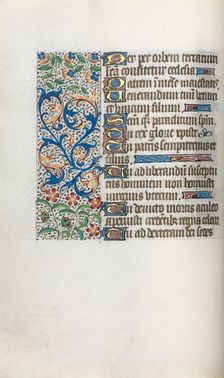 Te per orbem terrarum
sca confitetur ecclesia
Patrem inmense maiestatis
Venerandum tuum verum
et unicum filium
Sanctum quoque paraclitum spm
Tu rex glorie xpriste
Tu patris sempiternus es
filius
Tu ad liberandum suscepturus
hominem non horruisti
virginis uterum
Tu devicto mortis aculeo
aperuisti credentibus regna celorum
Tu ad dexteram dei sedes